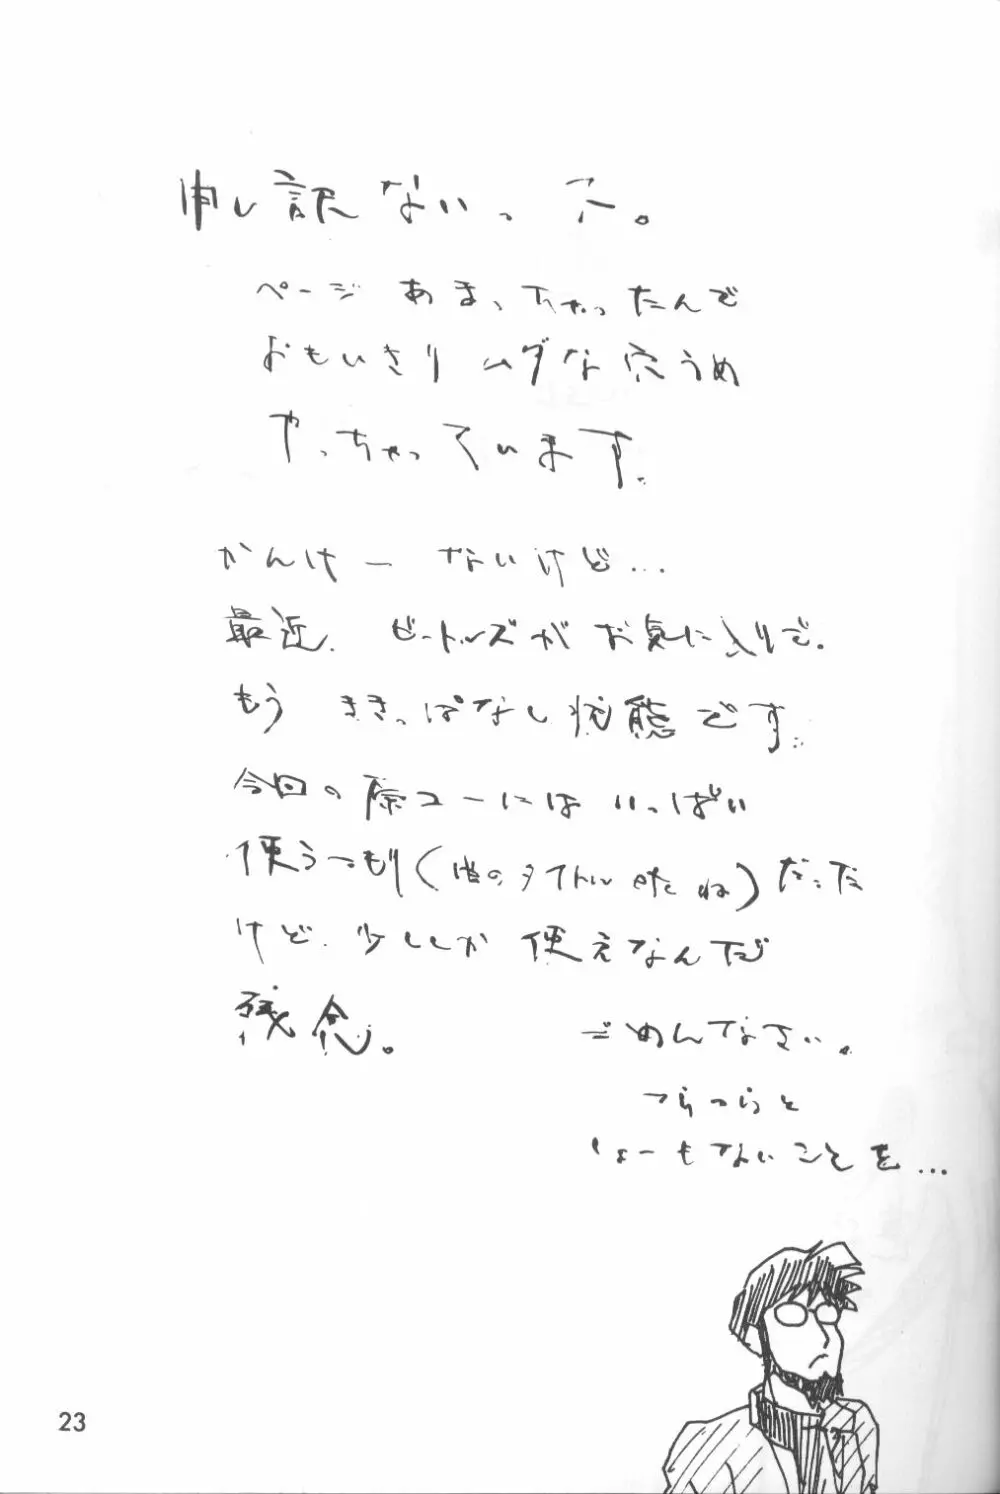 申し訳ないっス。
ページ あまっちゃったんで
おもいきりムダな穴うめ
やっちゃっています。
かんけー ないけど…
最近、ビートルズがお気に入りで。
もう ききっぱなし状態です。
今回の原コーにはいっぱい
使うつもり(曲のタイトルとかね)だった
けど、少ししか使えなんだ
残念。
ごめんなさい。
つらつらと
しょーもないことを…
23